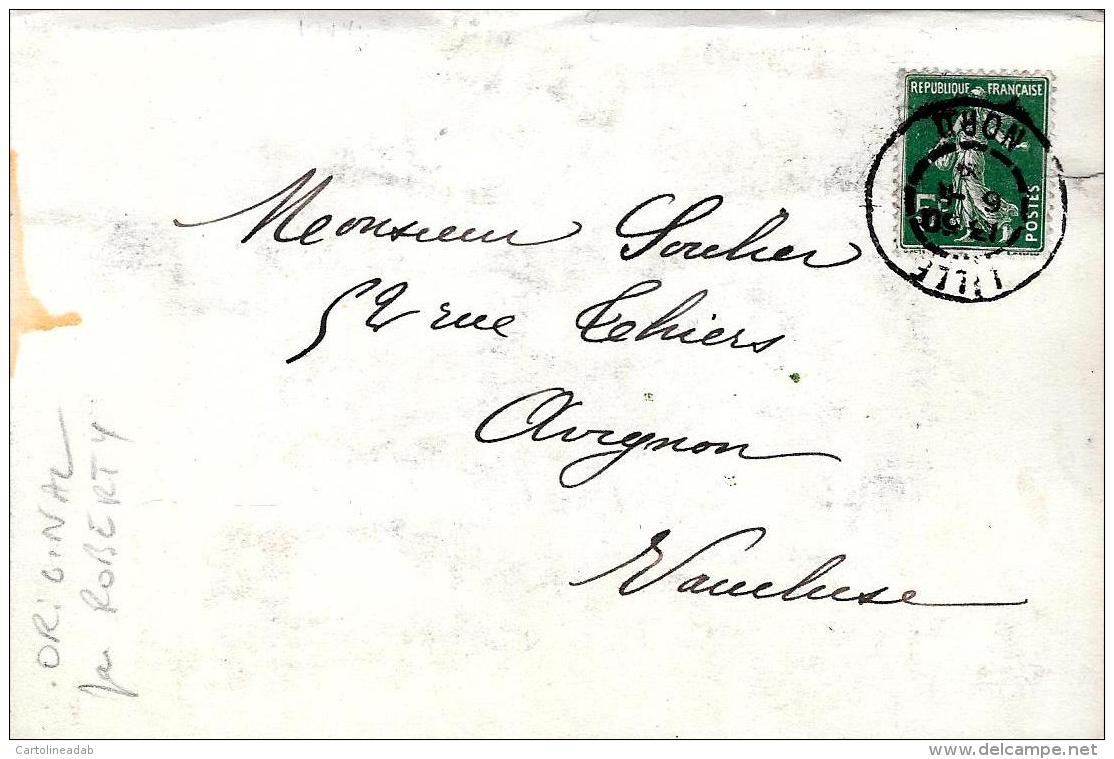 RÉPUBLIQUE FRANÇAISE
POSTES
LILLE
NORD
Monsieur Soulier
52 rue Thiers
Avignon
Vaucluse
ORIGINAL
par ROBERTY
Cartolineadab
www.delcampe.net